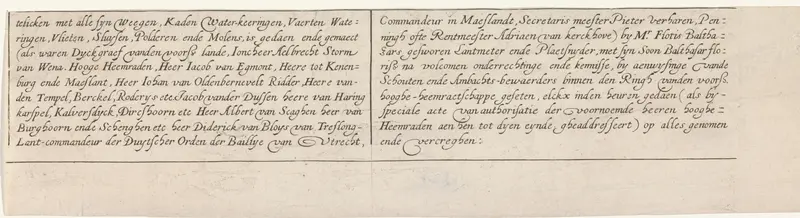 telicken met alle syn Weegen, Kaden Water-keeringen, Vaerten Wate-
ringen, Vlieten, Sluysen, Polderen ende Molens, is gedaen ende gemaect
als waren Dyckgraef vanden voorsz lande, Ioncheer Aelbrecht Storm
van Wena. Hooge Heemraden, Heer Iacob van Egmont, Heere tot Kenen-
burg ende Maeslant, Heer Iohan van Oldenbernevelt Ridder, Heere van-
den Tempel, Berckel, Roderys etc. Iacob vander Dussen heere van Haring
karspel, Kalversdyck, Direshoorn etc Heer Albert van Scaghen heer van
Burghoorn ende Schenghen etc heer Diderick van Bloys van Treslong-
Lant-commandeur der Duytscher Orden der Baillye van Utrecht,
Commandeur in Maeslande, Secretaris meester Pieter verharen, Pen-
ningh ofte Rentmeester Adriaen van kerckhove) by Mr. Floris Baltha-
zars gesworen Lantmeter ende Plaetsnyder, met syn Soon Balthasar flo-
risz na volcomen onderrechtinge ende kennisse, by aenwysinge vande
Schouten ende Ambachts-bewaerders binnen den Ringh vanden voorsz
hooghe-heemraetschappe geseten, elckx inden heuren gedaen (als by-
speciale acte van authorisatie der voornoemde heeren hooghe-
Heemraden aen hen tot dyen eynde gheaddresseert) op alles genomen
ende vercreghen: